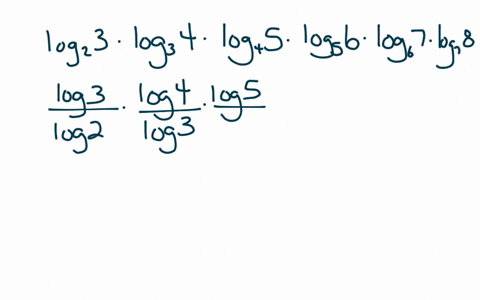 log₂3 · log₃4 · log₄5 · log₅6 · log₆7 · log₇8
log3/log2 · log4/log3 · log5/